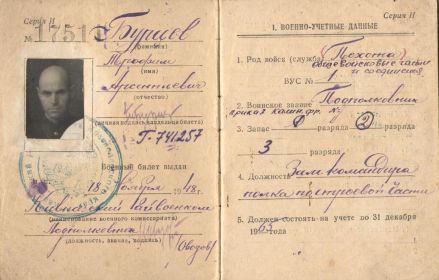 Серия И
№ 17511
Бушев
(фамилия)
Трофим
(имя)
Арсентьевич
(отчество)
(личная подпись владельца билета)
Г-781257
Военный билет выдан
18 ноября 1948 г.
Райвоенком
(наименование военного комиссариата)
Подполковник
(должность, звание, подпись)
Серия И
1. ВОЕННО-УЧЕТНЫЕ ДАННЫЕ
1. Род войск (служба) Пехота
общевойсковые части
и соединения
ВУС № 1
2. Воинское звание Подполковник
3. Запас разряда 2
3 разряда
4. Должность Зам. командира
полка по строевой части
5. Должен состоять на учете до 31 декабря
1963 года